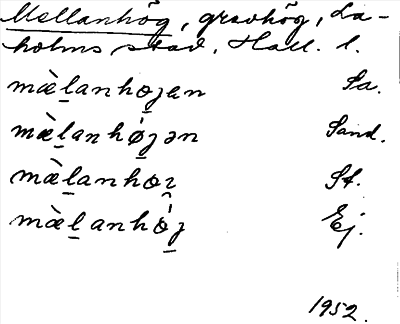 Mellanhög, gravhög, La-
holms stad, Hall. l.
mæ̀l̠anhøjen Sa.
mæ̀l̠anhǿ̠jən Sand.
mæ̀l̠anhøj St.
mæ̀l̠anhǿ̠j Ej.
1952.